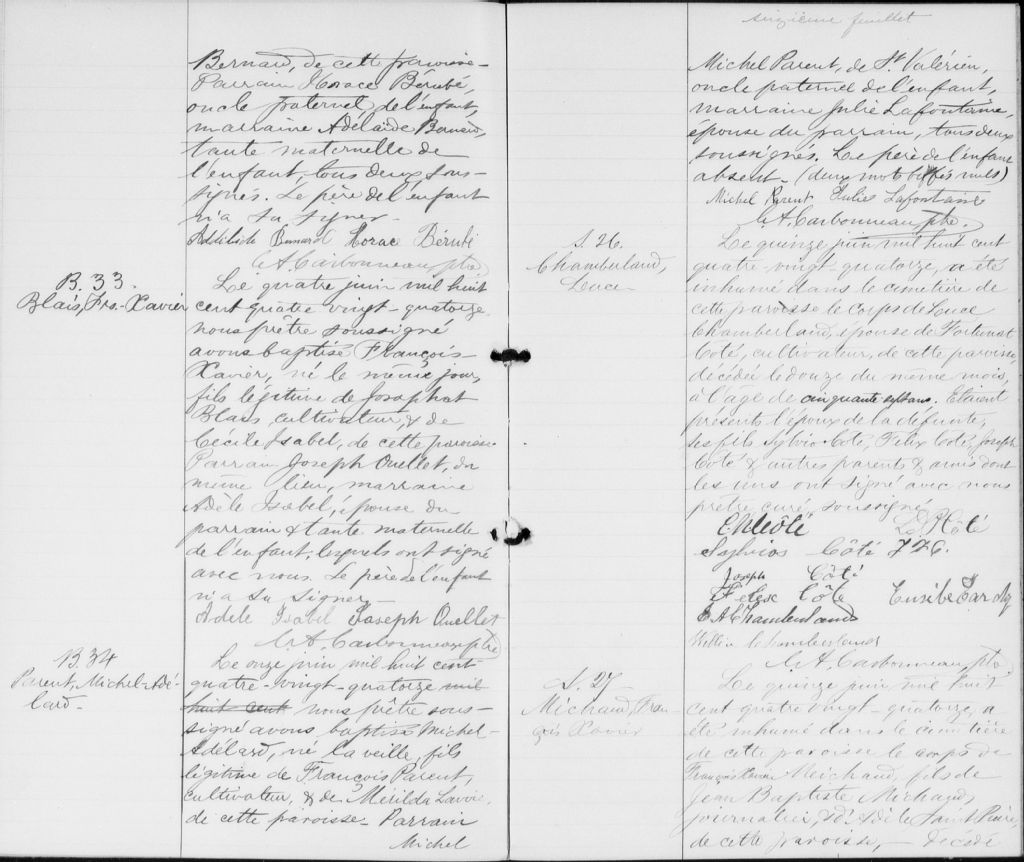 Bernard, de cette paroisse-
Parrain Horace Bérubé,
oncle paternel de l'enfant,
marraine Adélaïde Bernard,
tante maternelle de
l'enfant, tous deux sous-
signés. Le père de l'enfant
n'a su signer-
Horace Bérubé
C. A. Carbonneau, ptre.
B. 33.
Blais, Frs.-Xavier
Le quatre juin mil huit
cent quatre vingt-quatorze
nous prêtre soussigné
avons baptisé François-
Xavier, né le même jour,
fils légitime de Josaphat
Blais, cultivateur, & de
Cécile Isabel, de cette paroisse
Parrain Joseph Ouellet, du
même lieu, marraine
Adèle Isabel, épouse du
parrain & tante maternelle
de l'enfant, lesquels ont signé
avec nous. Le père de l'enfant
n'a su signer-
Adele Isabel Joseph Ouellet
C. A. Carbonneau, ptre
B. 34
Parent, Michel-Adé-
lard-
Le onze juin mil huit cent
quatre-vingt-quatorze mil
huit cent nous prêtre sous-
signé avons baptisé Michel-
Adélard, né la veille, fils
légitime de François Parent,
cultivateur, & de Mérilda Lavoie,
de cette paroisse- Parrain
Michel
onzième feuillet
Michel Parent, de St Valérien,
oncle paternel de l'enfant,
marraine Julie Lafontaine,
épouse du parrain, tous deux
soussignés. Le père de l'enfant
absent- (deux mots biffés nuls)
Michel Parent Julie Lafontaine
C. A. Carbonneau, ptre.
S. 26.
Chamberland,
Luce-
Le quinze juin mil huit cent
quatre-vingt-quatorze, a été
inhumé dans le cimetière de
cette paroisse le corps de Luce
Chamberland, épouse de Fortunat
Coté, cultivateur, de cette paroisse,
décédée le douze du même mois,
à l'âge de cinquante sept ans. Etaient
présents l'époux de la défunte,
ses fils Sylvio Coté, Félix Coté, Joseph
Coté & autres parents & amis dont
les uns ont signé avec nous
prêtre curé, soussigné
Côté
Sylvios Côté
Joseph Côté
Côté
C. A. Carbonneau, ptre
S. 27-
Michaud, Fran-
çois Xavier
Le quinze juin mil huit
cent quatre vingt-quatorze, a
été inhumé dans le cimetière
de cette paroisse le corps de
François Xavier Michaud, fils de
Jean Baptiste Michaud,
journalier, & d'Adèle Saint Pierre,
de cette paroisse, - décédé